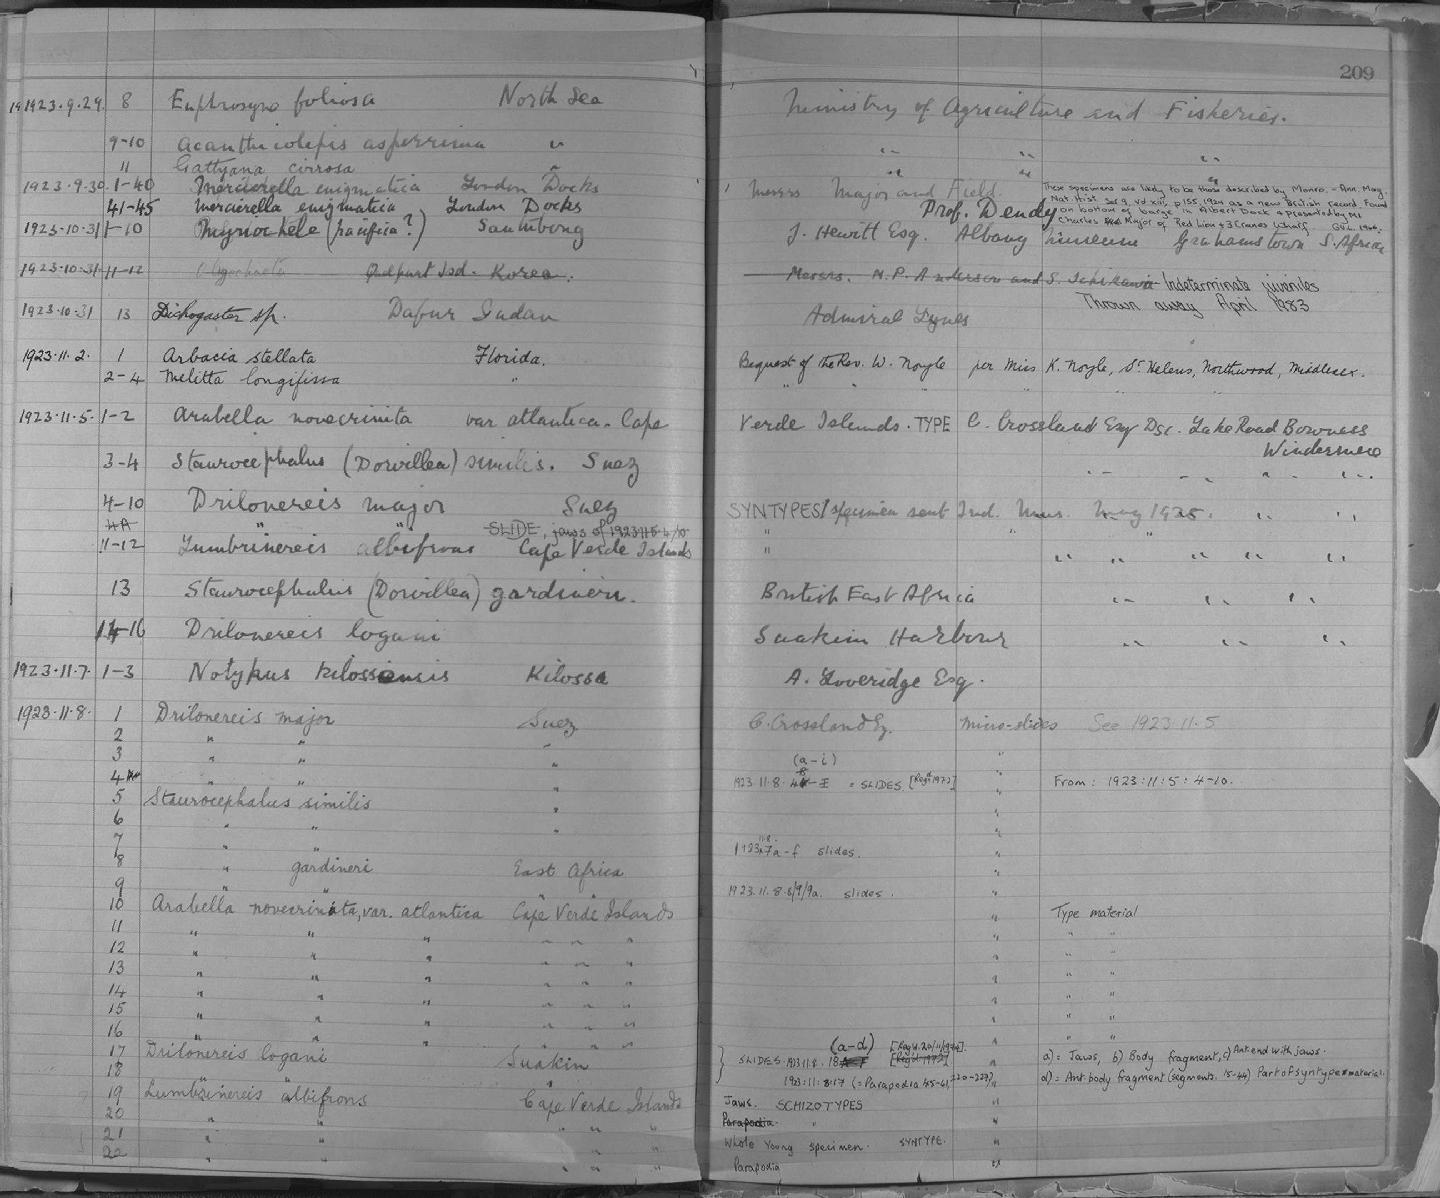 209
1923.9.29. 8 Euphrosyne foliosa North Sea Ministry of Agriculture and Fisheries.
9-10 Acanthicolepis asperrima " " " "
11 Gattyana cirrosa " " "
1923.9.30. 1-40 Mercierella enigmatica London Docks Messrs Major and Field. These specimens are likely to be those described by Monro. - Ann. Mag.
Nat. Hist. Ser 9, Vol xiii, p155, 1924 as a new British record. Found
41-45 Mercierella enigmatica London Docks Prof. Dendy on bottom of barge in Albert Dock & presented by
Charles Major of Red Lion & 3 Cranes Wharf.
1923.10.31 1-10 Myriochele (pacifica?) J. Hewitt Esq. Albany Museum Grahamstown S. Africa
1923.10.31. 11-12 Oligochaeta Quelpart Isd. Korea. Messrs. M.P. Anderson and S. Ichikawa Indeterminate juveniles
Thrown away April 1983
1923.10.31 13 Dichogaster sp. Dafur Sudan Admiral Lynes
1923.11.2. 1 Arbacia stellata Florida. Bequest of the Rev. W. Noyle per Miss K. Noyle, St Helens, Northwood, Middlesex.
2-4 Melitta longifissa " " " " "
1923.11.5. 1-2 Arabella novecrinita var atlantica. Cape Verde Islands. TYPE C. Crossland Esq DSc. Lake Road Bowness
Windermere
3-4 Staurocephalus (Dorvillea) similis. Suez " " " "
4-10 Drilonereis major Suez SYNTYPES 1 specimen sent Ind. Mus. May 1925. " "
4A " " SLIDE, jaws of 1923.11.5.4/10 " " "
11-12 Lumbrinereis albifrons Cape Verde Islands " " " " " "
13 Staurocephalus (Dorvillea) gardineri. British East Africa " " "
14-16 Drilonereis logani Suakim Harbour " " "
1923.11.7. 1-3 Notykus kilossensis Kilossa A. Loveridge Esq.
1923.11.8. 1 Drilonereis major Suez C. Crossland Esq. micro-slides See 1923.11.5
2 " " " "
3 " " " (a-i) "
4 " " " 1923.11.8.4 = SLIDES [Reg'd 1972] " From: 1923:11:5:4-10.
5 Staurocephalus similis " "
6 " " " "
7 " " 7a-f slides. "
8 " gardineri East Africa "
9 " " " " 1923.11.8.8/9/9a. slides. "
10 Arabella novecrinita, var. atlantica Cape Verde Islands " Type material
11 " " " " " " " " "
12 " " " " " " " " "
13 " " " " " " " " "
14 " " " " " " " " "
15 " " " " " " " " "
16 " " " " " " " " "
17 Drilonereis logani Suakin SLIDES. 1923.11.8.18 (a-d) [Reg'd. 20/11/1974]. [Reg'd 1972] " a) = Jaws, b) Body fragment, c) Ant. end with jaws.
18 " " " 1923:11:8:17 (= Parapodia " d) = Ant. body fragment (segments. 15-44) Part of syntype material.
19 Lumbrinereis albifrons Cape Verde Islands Jaws. SCHIZOTYPES "
20 " " " " " Parapodia. " "
21 " " " " " Whole Young specimen. SYNTYPE. "
22 " " " " " Parapodia "